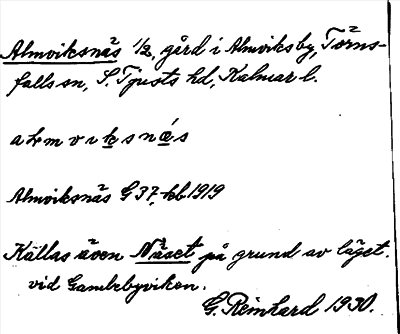 Almviksnäs 1/2, gård i Almviks by, Törns-
falls sn, S. Tjusts hd, Kalmar l.
almviksnǽs
Almviksnäs G 37, kb 1919
Kallas även Näset på grund av läget.
vid Gamlebyviken.
G. Reinhard 1930.